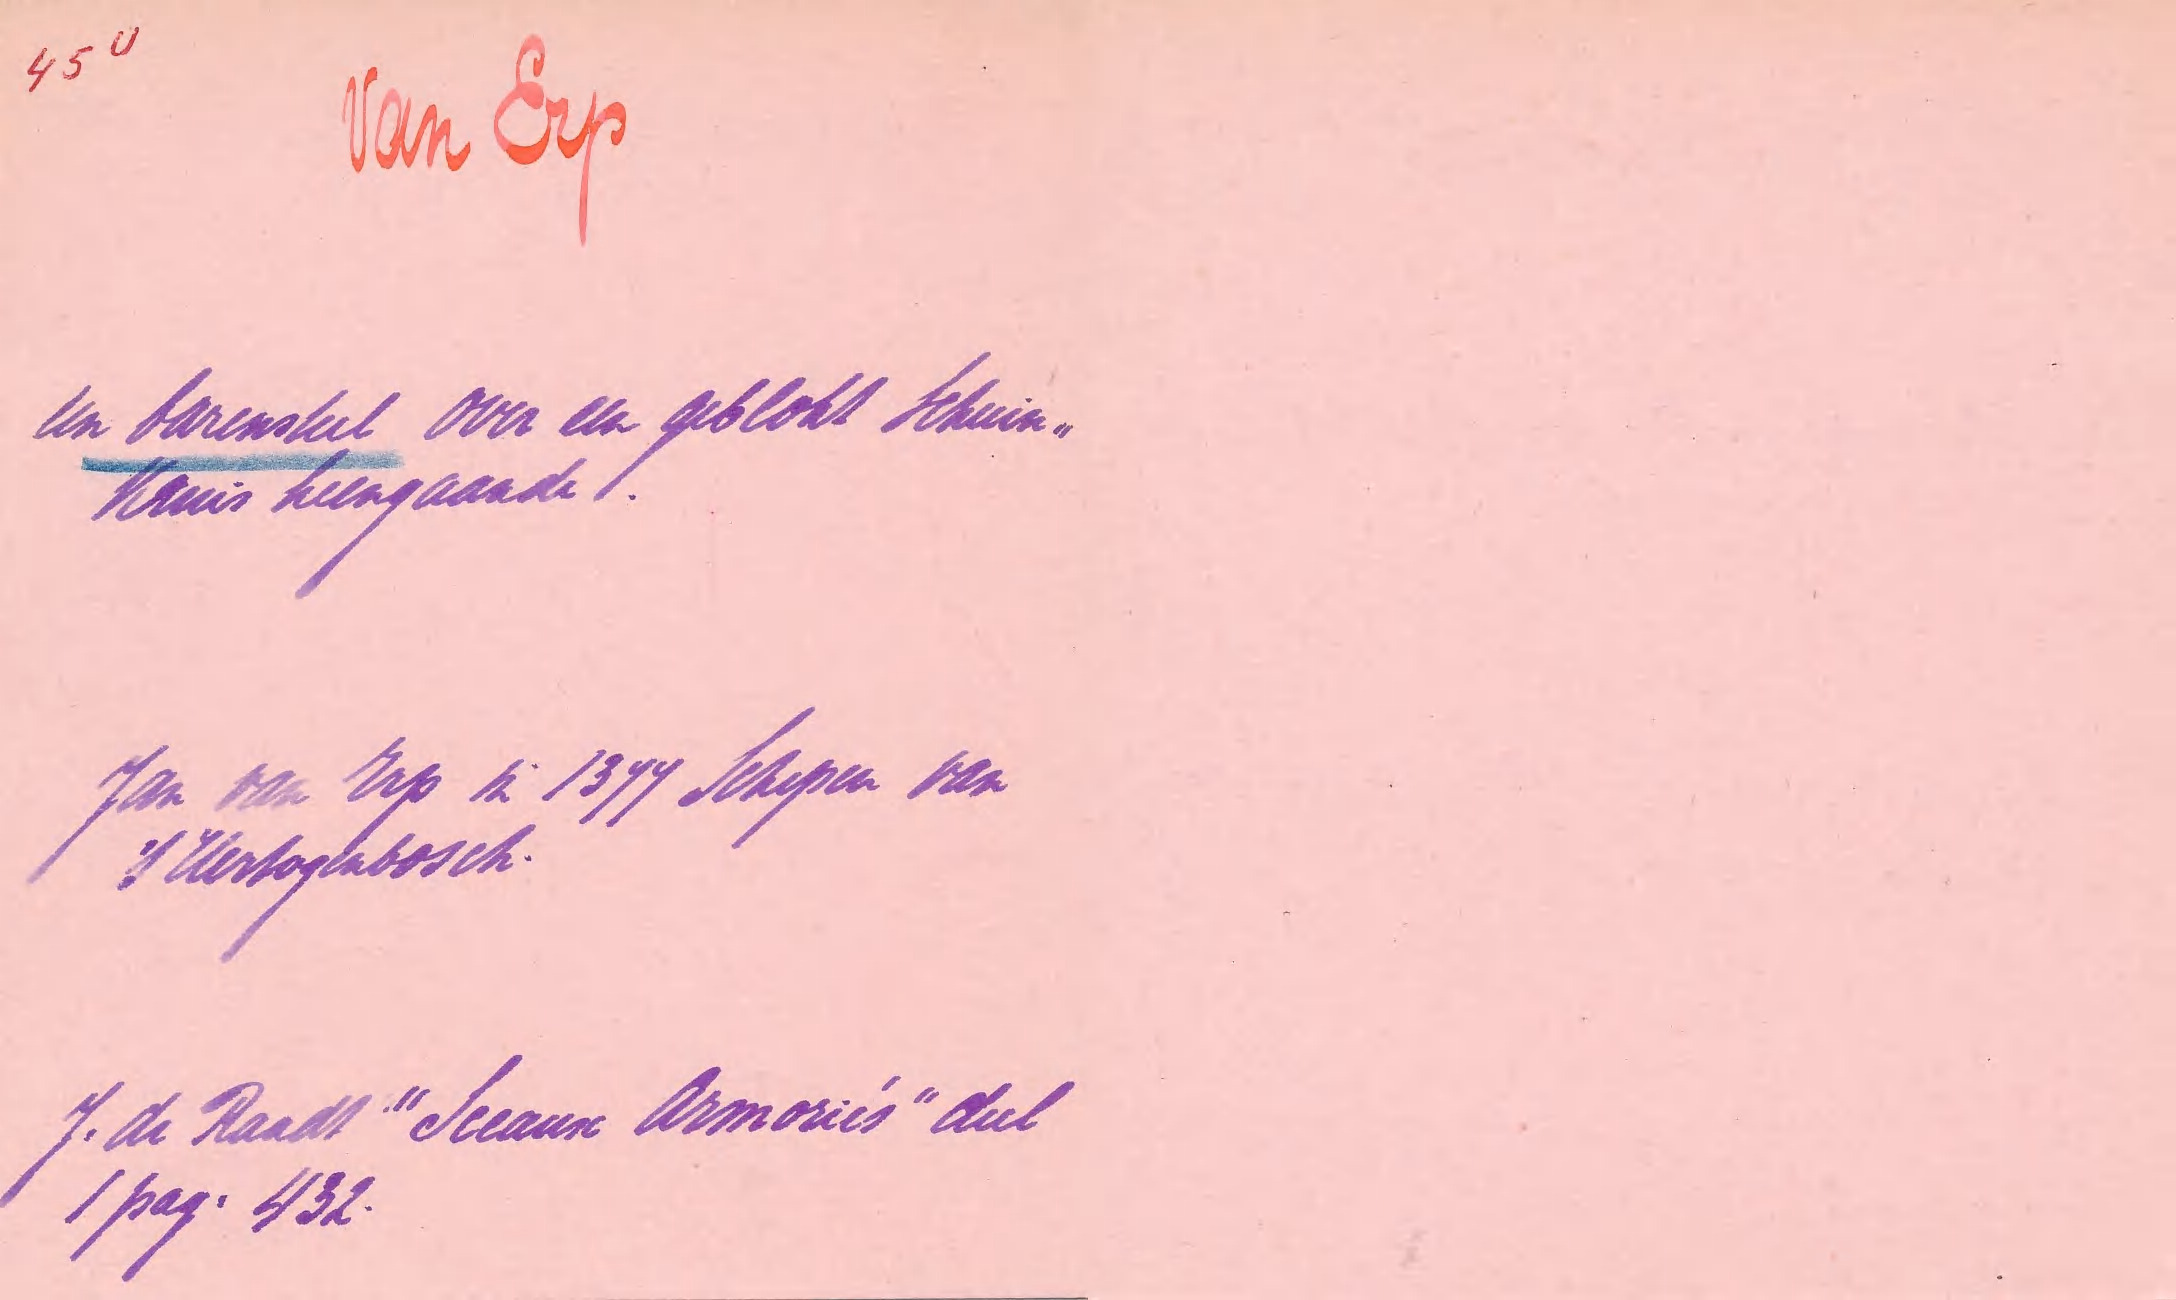 45 U
van Erp
een barensteel over een geblokt schuin„
kruis heengaande.
Jan van Erp in 1377 Schepen van
's Hertogenbosch.
J. de Raadt "Sceaux Armoriés" deel
1 pag. 432.